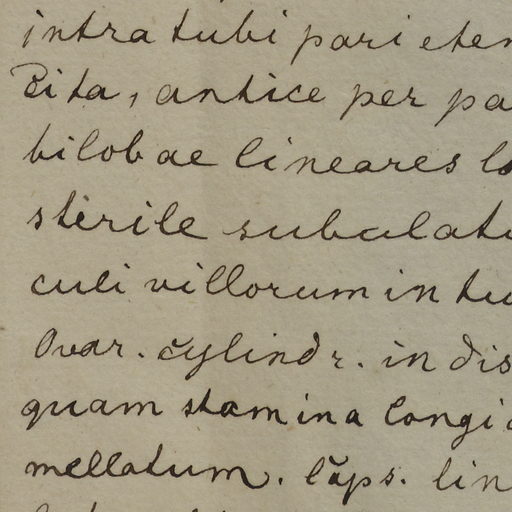 intra tubi pari eten
Rita, antice per pa
bilobae lineares lo
stèrile subulatu
culi villorum in tu
Ovar. cylindr. in dis
quam stamina longio
mellatum. Căps. lin